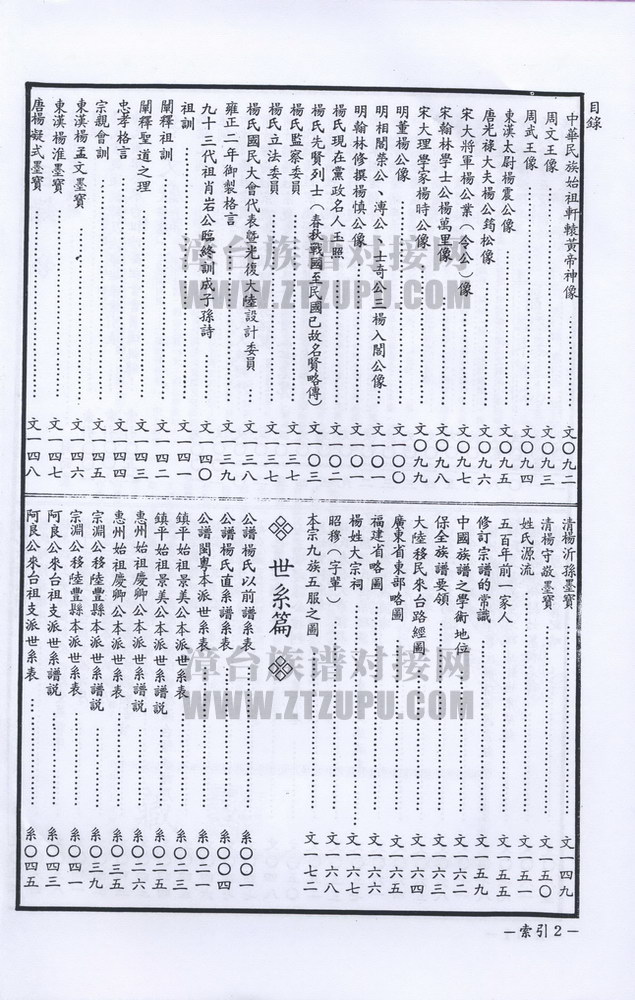 目錄
中華民族始祖軒轅黃帝神像 文〇九二
周文王像 文〇九三
周武王像 文〇九四
東漢太尉楊震公像 文〇九五
唐光祿大夫楊公筠松像 文〇九六
宋大將軍楊公業（令公）像 文〇九七
宋翰林學士公楊萬里像 文〇九八
宋大理學家楊時公像 文〇九九
明董楊公像 文一〇〇
明翰林修撰楊慎公像 文一〇〇
明相閣榮公、溥公、士奇公三楊入閣公像 文一〇一
楊氏現在黨政名人玉照 文一〇二
楊氏先賢列士（春秋戰國至民國已故名賢略傳） 文一〇三
楊氏監察委員 文一三七
楊氏立法委員 文一三七
楊氏國民大會代表暨光復大陸設計委員 文一三八
雍正二年御製格言 文一三九
九十三代祖肖岩公臨終訓成子孫詩 文一四〇
祖訓 文一四一
闡釋祖訓 文一四二
闡釋聖道之理 文一四三
忠孝格言 文一四四
宗親會訓 文一四五
東漢楊孟文墨寶 文一四六
東漢楊淮墨寶 文一四七
唐楊凝式墨寶 文一四八
清楊沂孫墨寶 文一四九
清楊守敬墨寶 文一五〇
姓氏源流 文一五一
五百年前一家人 文一五五
修訂宗譜的常識 文一五九
中國族譜之學術地位 文一六二
保全族譜要領 文一六三
大陸移民來台路經圖 文一六四
廣東省東部略圖 文一六五
福建省略圖 文一六六
楊姓大宗祠 文一六七
昭穆（字輩） 文一六八
本宗九族五服之圖 文一七二
世系篇
公譜楊氏以前譜系表 系〇〇一
公譜楊氏直系譜系表 系〇〇四
公譜閩粵本派世系表 系〇二一
鎮平始祖景美公本派世系表 系〇二三
鎮平始祖景美公本派世系譜說 系〇二五
惠州始祖慶卿公本派世系譜說 系〇二六
惠州始祖慶卿公本派世系表 系〇三五
宗淵公移陸豐縣本派世系譜說 系〇三九
宗淵公移陸豐縣本派世系表 系〇四一
阿良公來台祖支派世系譜說 系〇四三
阿良公來台祖支派世系表 系〇四五
—索引2—
漳台族谱对接网
WWW.ZTZUPU.COM
漳台族谱对接网
WWW.ZTZUPU.COM